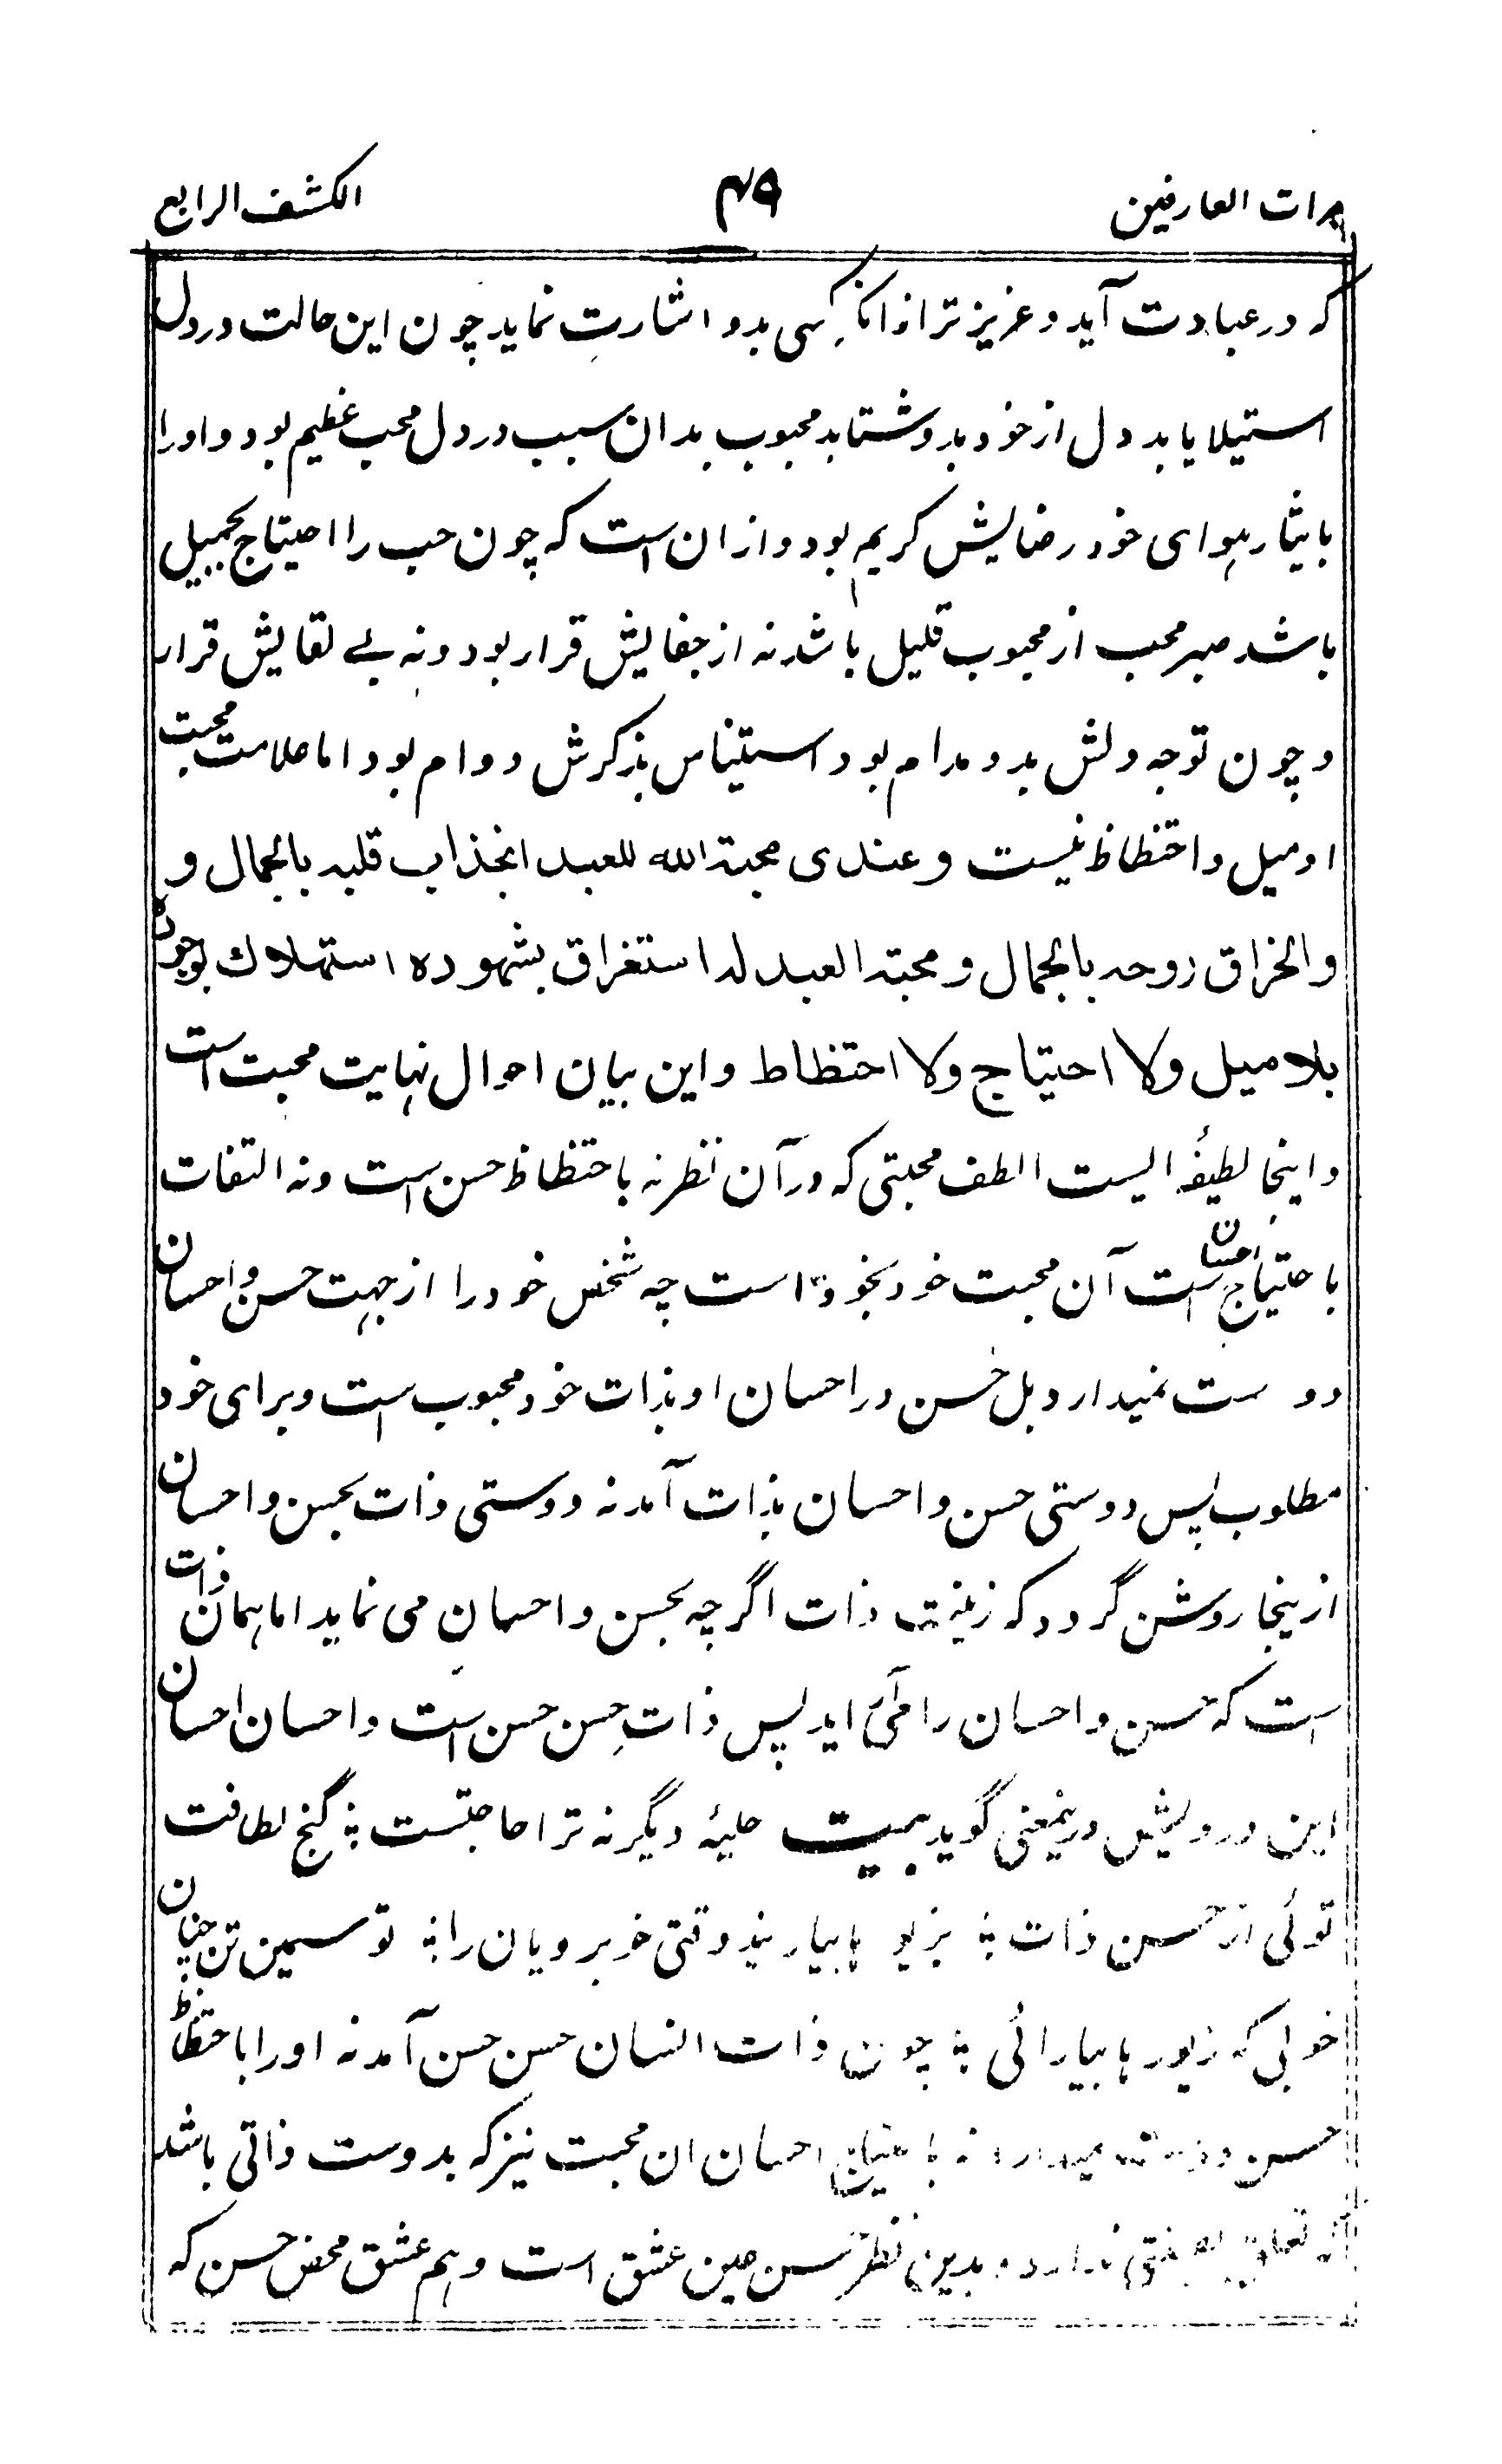 مرات العارفین ۴۹ الکشف الرابع
که در عبادت آید و عزیز تر از انکه کسی بدو اشارت نماید چون این حالت در دل
استیلا یابد دل از خود بدو شتابد محبوب بدان سبب در دل محب عظیم بود و او را
بایثار ہوای خود رضایش کریم بود و ازان است که چون حب را احتیاج بجمیل
باشد صبر محب از محبوب قلیل باشد نه از جفایش قرار بود و نه بے لقایش قرار
و چون توجه دلش بدو مدام بود استیناس بذکرش دوام بود اما علامت محبت
او میل و احتظاظ نیست و عندی محبة الله للعبد انجذاب قلبه بالجمال و
والخراق روحه بالجمال و محبة العبد له استغراق بشهوده استهلاك بوجوده
بلا میل ولا احتیاج ولا احتظاظ و این بیان احوال نہایت محبت است
و اینجا لطیفۂ ایست الطف محبتی که در آن نظر نه باحتظاظ حسن است و نه التفات
باحتیاج احسان است آن محبت خود بخود است چه شخص خود را از جہت حسن و احسان
دوست نمیدارد بل حسن و احسان او بذات خود محبوب است و برای خود
مطلوب پس دوستی حسن و احسان بذات آمد نه دوستی ذات بحسن و احسان
ازینجا روشن گردد که زینت ذات اگرچه بحسن و احسان می نماید اما ہمان ذات
است که حسن و احسان را می آراید پس ذات حسن حسن است و احسان احسان
این درویش درینمعنی گوید بیت حلیۂ دیگر نه ترا حاجتست ؛ گنج لطافت
توئی از حسن ذات ؛ بزیورہا بیارایند وقتی خوبرویان را ؛ تو سیمین تن چنان
خوبی که زیورہا بیارائی ؛ چون ذات انسان حسن حسن آمد نه او را باحتظاظ
حسن دوست میدارد نه باحتیاج احسان ان محبت نیز که بدوست ذاتی باشد
تعلق بصفتی ندارد و بدین نظر حسن عین عشق است و ہم عشق محض حسن که